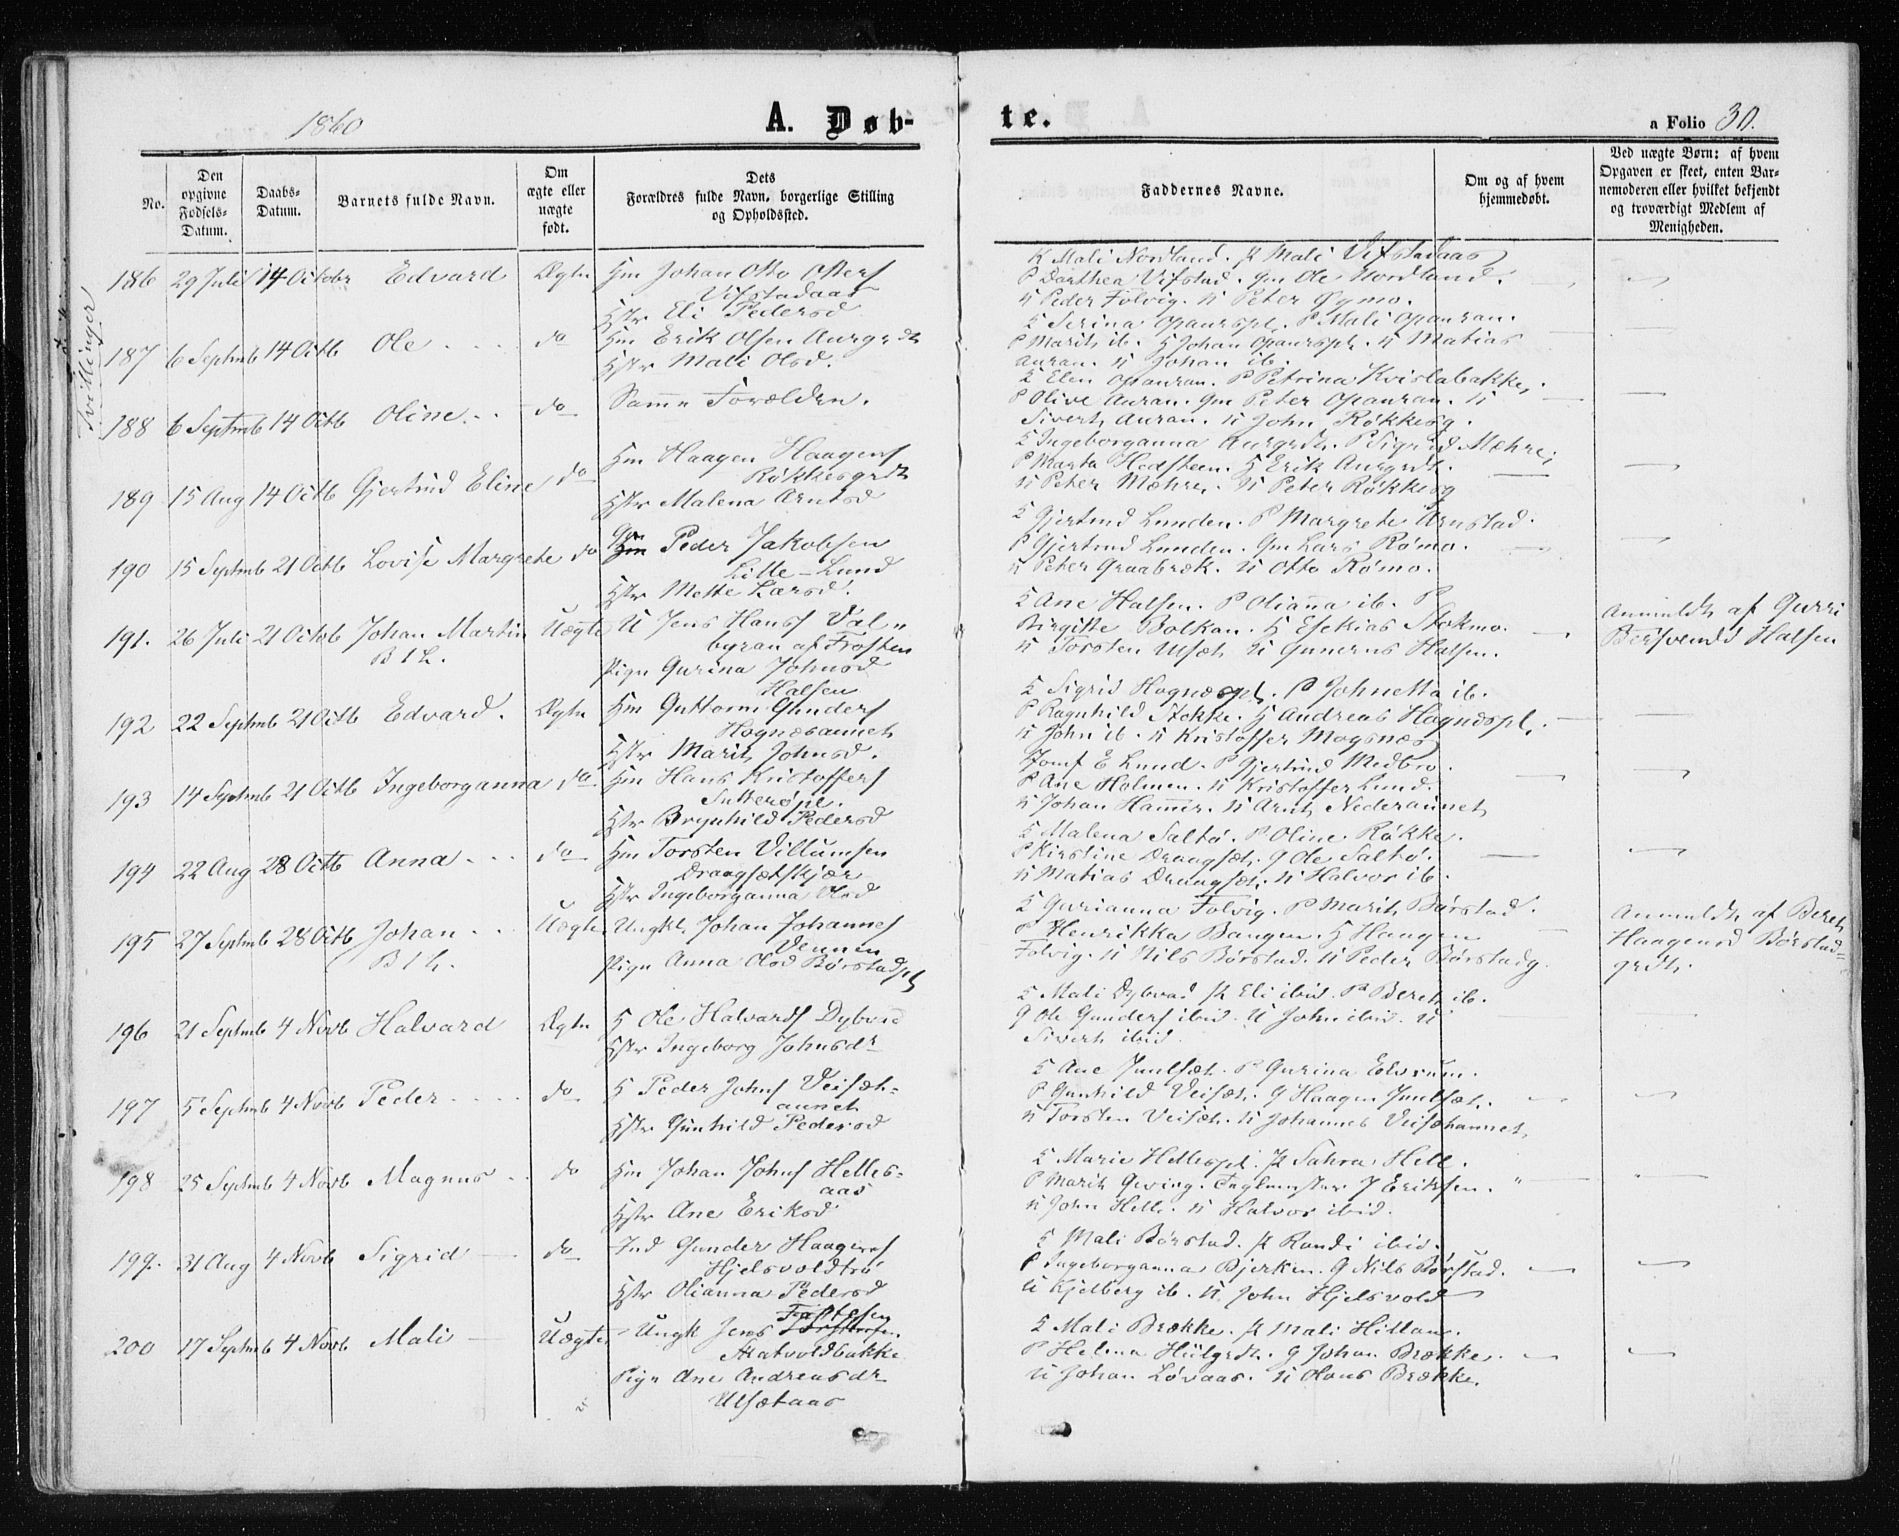 1860
A. Døb-
te.
a Folio 30.
No.
Den opgivne Fødsels-Datum.
Daabs-Datum.
Barnets fulde Navn.
Om ægte eller uægte født.
Dets Forældres fulde Navn, borgerlige Stilling og Opholdssted.
Faddernes Navne.
Om og af hvem hjemmedøbt.
Ved uægte Børn: af hvem Opgaven er skeet, enten Barnemoderen eller hvilket bekjendt og troværdigt Medlem af Menigheden.
186 29 Juli 14 Octobr Edvard Ægte Hm Johan Otto Osters
Vifstadaas
Hstr Eli Pedersd
K Mali Nordland. K Mali Vifstadaas
P Dorthea Vifstad. Gm Ole Nordland.
U Peder Folvig. U Peter Øymo.
Tvillinger
187 6 Septmb 14 Octb Ole do Hm Erik Olsen Aurgrdt
Hstr Mali Olsd.
K Serina Opaurspl. P Mali Opauran.
P Marit ib. H Johan Opaurspl. U Matias
Auran. U Johan ib.
188 6 Septmb 14 Octb Oline do Samme Forældre.
K Elen Opauran. P Petrina Kvislabakke.
P Olive Auran. Gm Peter Opauran. U
Sivert Auran. U John Røkkesg.
189 15 Aug 14 Octb Gjertrud Eline do Hm Haagen Haagens
Røkkesgrdt
Hstr Malena Arntsd
K Ingeborganna Aurgrdt. P Sigrid Mæhre.
P Marta Hedsteen. H Erik Aurgrdt.
U Peter Mæhre. U Peter Røkkesg
190 15 Septmb 21 Octb Lovise Margrete do Gm Peder Jakobsen
Lille-Lund
Hstr Mette Larsd.
K Gjertrud Lunden. P Margrete Arnstad.
P Gjertrud Lunden. Gm Lars Rømo.
U Peter Graabræk. U Otto Rømo.
191. 26 Juli 21 Octob Johan Martin Uægte U Jens Hans Val-
B 1 L. byran af Frosten
Pige Gurina Johnsd
Halsen
K Ane Halsen. P Olianna ib. P
Birgitte Bolkan. H Esekias Stokmo.
U Torsten Ulsæt U Gunerus Halsen.
Anmeldt af Gurri
Børsvensd Halsen
192 22 Septmb 21 Octb Edvard. Ægte Hm Guttorm Gunders
Hognæsaunet
Hstr Marit Johnsd.
K Sigrid Hognæspl. P Johnetta ib.
P Ragnhild Stokke. H Andreas Hognæspl.
U John ib. U Kristoffer Mogsnæs
193 14 Septmb 21 Octb Ingeborganna do Hm Hans Kristoffers
Sutterøpl.
Hstr Brynhild Pedersd
Jomf E Lund. P Gjertrud Medbro.
P Ane Holmen. U Kristoffer Lund.
U Johan Hammer. U Arnt Nederaunet
194 22 Aug 28 Octb Anna do Hm Torsten Villumsen
Draagsætskjær
Hstr Ingeborganna Olsd
K Malena Saltø. P Oline Røkke.
P Kirstine Draagsæt. G Ole Saltø.
U Matias Draagsæt. U Halvor ib.
195 27 Septmb 28 Octb Johan Uægte Ungkl Johan Johannes
B 1 L. Vennen
Pige Anna Olsd Børstadpl
K Gurianna Folvig. P Marit Børstad.
P Henrikka Bangen. H Haagen
Folvig. U Nils Børstad. U Peder Børstadg.
Anmeldt af Beret
Haagensd Børstad-
grdt.
196 21 Septmb 4 Novb Halvard Ægte H Ole Halvards Dybvad
Hstr Ingeborg Johnsdr
K Mali Dybvad K Eli ibid. P Beret ib.
G Ole Gunders ibid. U John ibid. U
Sivert ibid
197 5 Septmb 4 Novb Peder do H Peder Johns Veisæt-
aunet
Hstr Gunhild Pedersd
K Ane Juulsæt. P Gurina Elvrum.
P Gunhild Veisæt. G Haagen Juulsæt.
U Torsten Veisæt. U Johannes Veisætaunet.
198 25 Septmb 4 Novb Magnus do Hm Johan Johns Helles-
aas
Hstr Ane Eriksd
K Marie Hellespl. K Sahra Hell.
P Marit Geving. Faglmester J Eriksen.
U John Hell. U Halvor ibid.
199. 31 Aug 4 Novb Sigrid do Ind Gunder Haagens
Hjelsvoldtrø
Hstr Olianna Pedersd
K Mali Børstad. K Randi ibid.
P Ingeborganna Bjerken. G Nils Børstad.
U Kjelberg ib. U John Hjelsvold
200 17 Septmb 4 Novb Mali Uægte Ungk Jens
Skatvoldbakke
Pige Ane Andreasdr
Ulsætaas
K Mali Brække. K Mali Hillan.
P Helena Hillgrdt. G Johan Brække.
U Johan Løvaas. U Hans Brække.